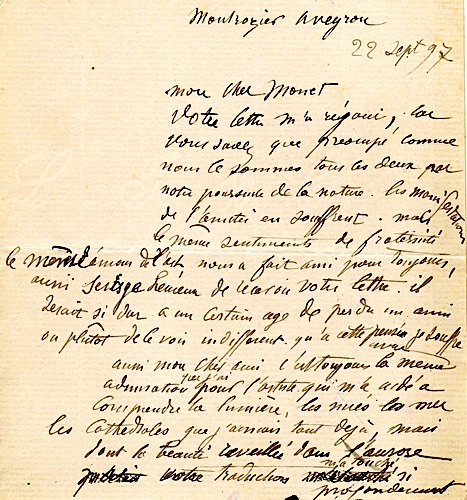 Montrozier Aveyron
22 Sept 97
mon cher Monet
Votre lettre m'a réjoui, car
vous savez que préoccupé comme
nous le sommes tous les deux par
notre poursuite de la nature. les manifestations
de l'amitié en souffrent. mais
le même sentiments de fraternité
le même amour de l'art, nous a fait ami pour toujours,
aussi heureux de recevoir votre lettre. il
serait si dur a un certain age de perdre un ami
ou plutôt de le voir indifferent, qu'a cette pensée je souffre
aussi mon cher ami c'est toujours la même
admiration que j'ai pour l'artiste qui m'a aidé a
comprendre la lumière, les nuées les mer
les Cathedrales que j'aimais tant déjà, mais
dont la beauté reveillée dans l'aurore
votre traduction m'a touché si
profondement